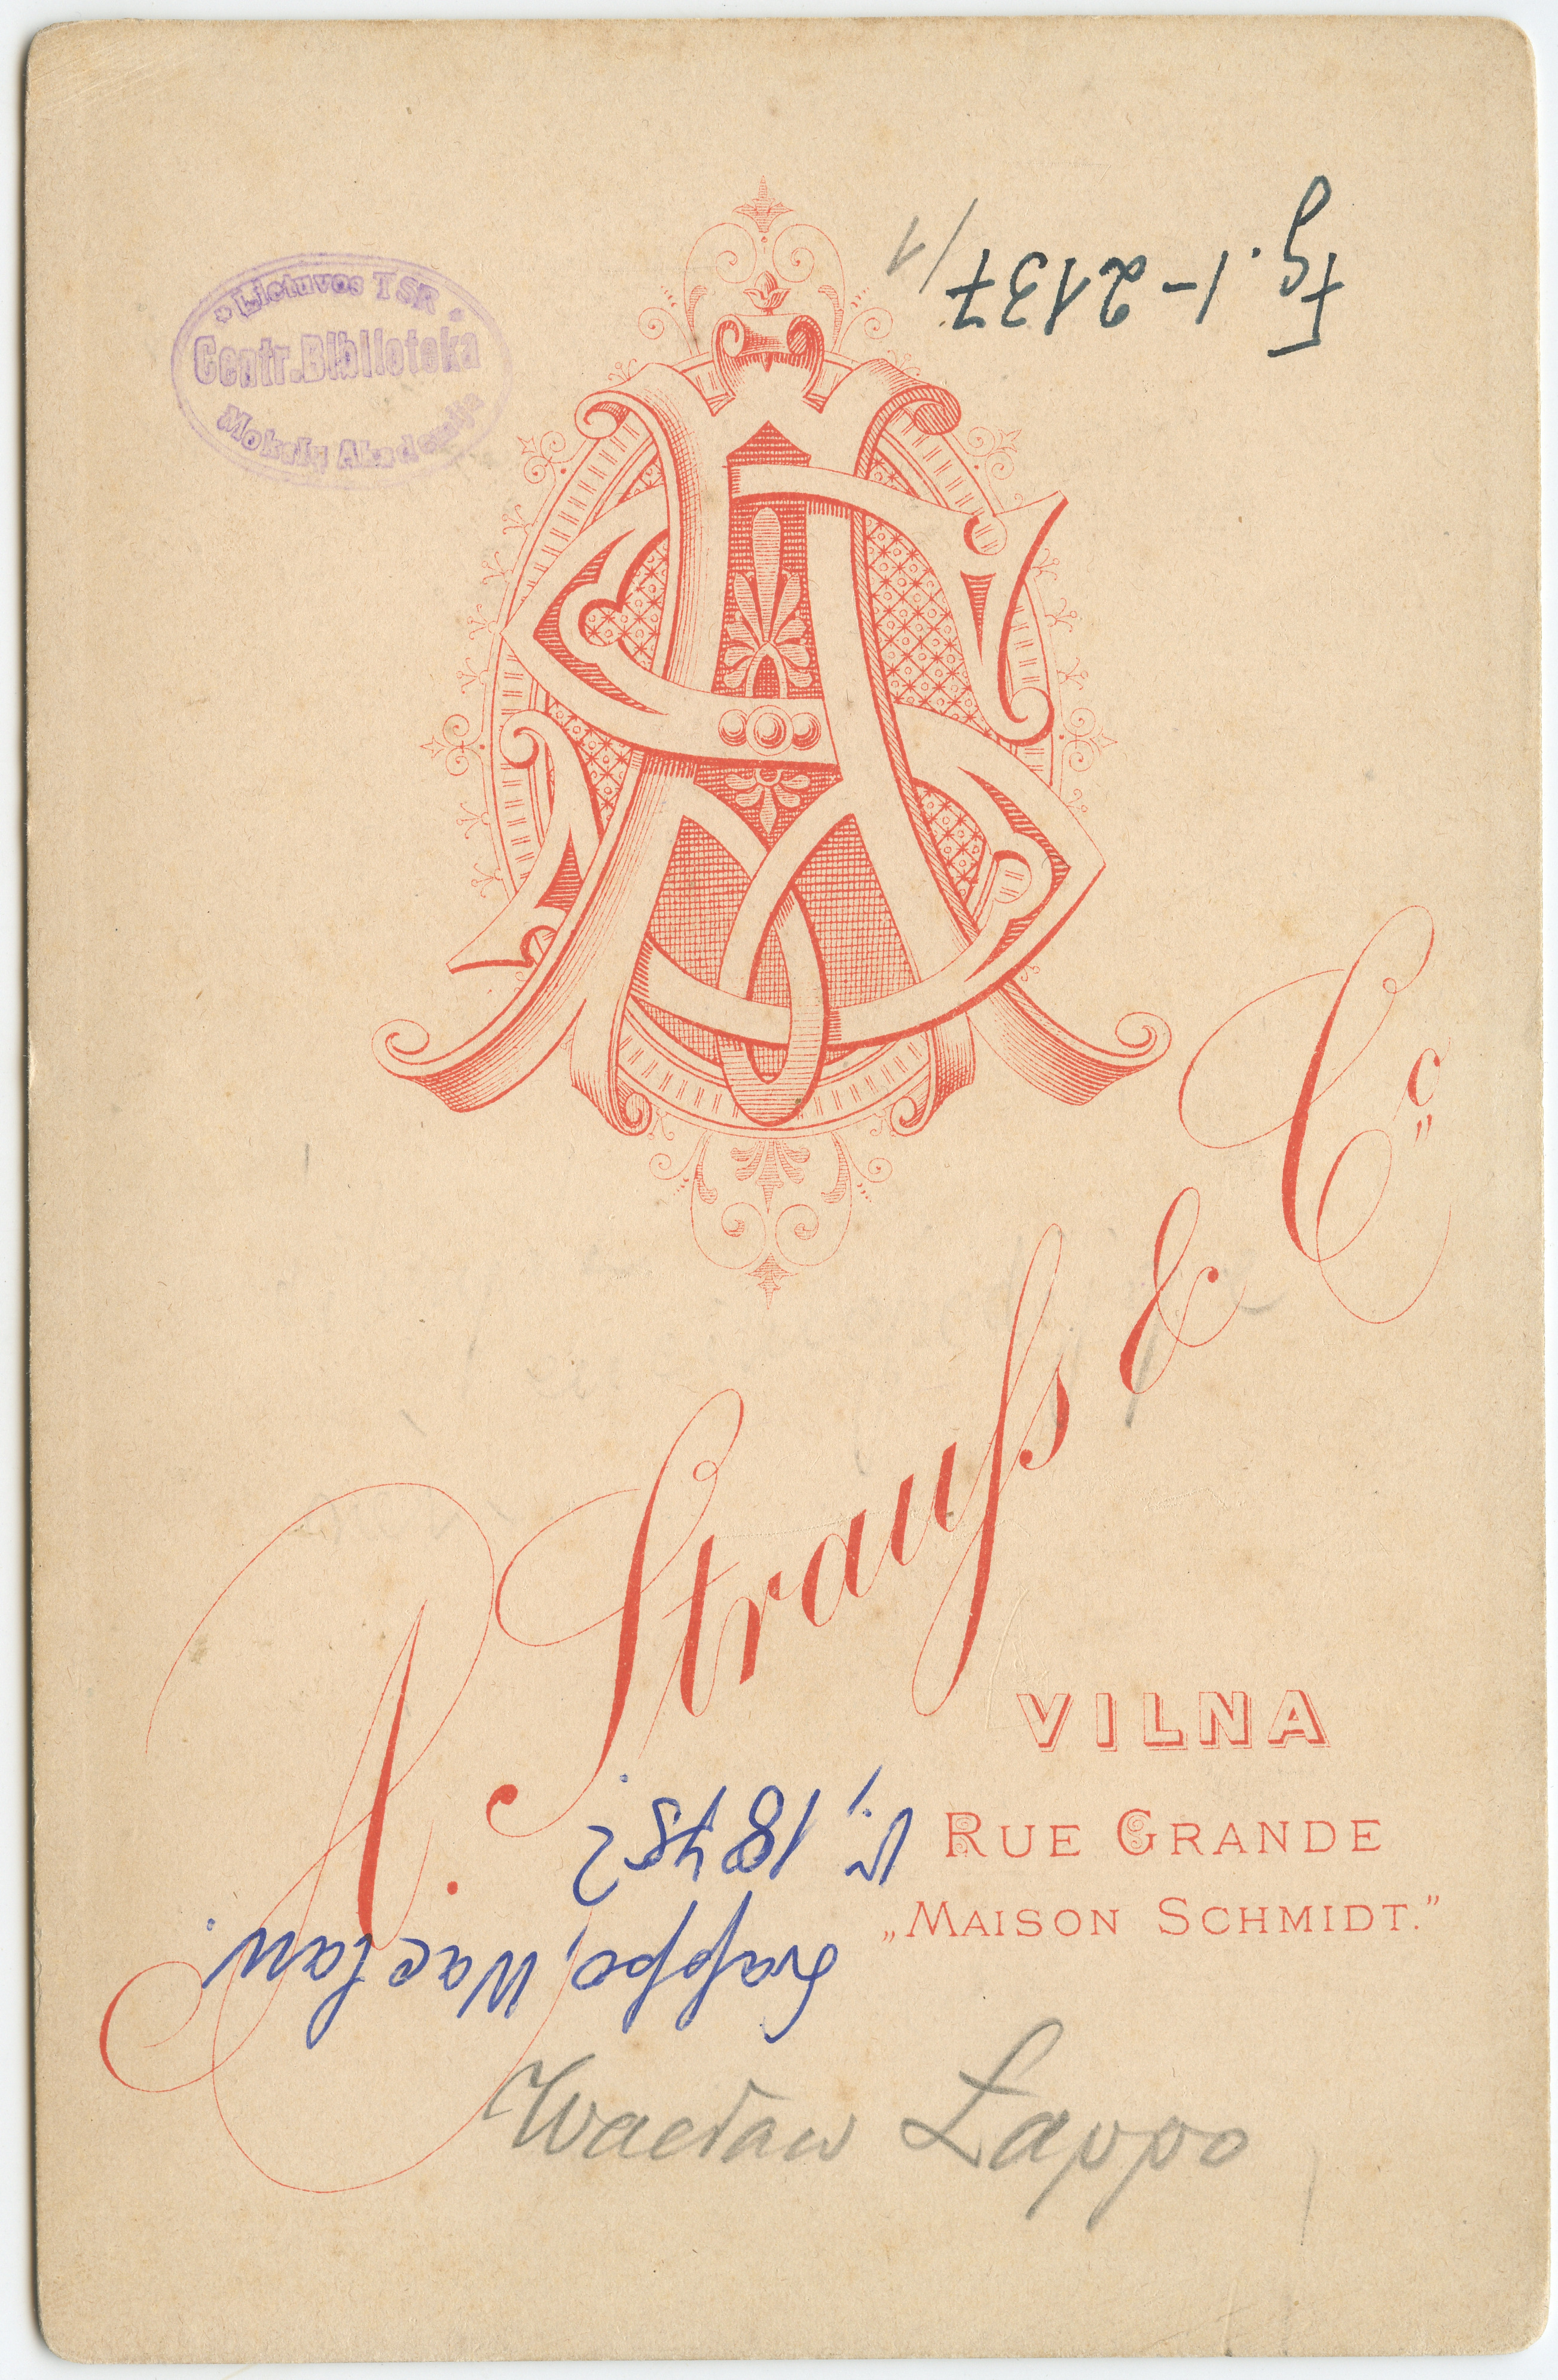 Lietuvos TSR
Centr. Biblioteka
Mokslų Akademija
Fg. 1-2137/1
A. Strauss & Cº
VILNA
RUE GRANDE
„MAISON SCHMIDT.”
Łappo, Wacław.
Wacław Łappo